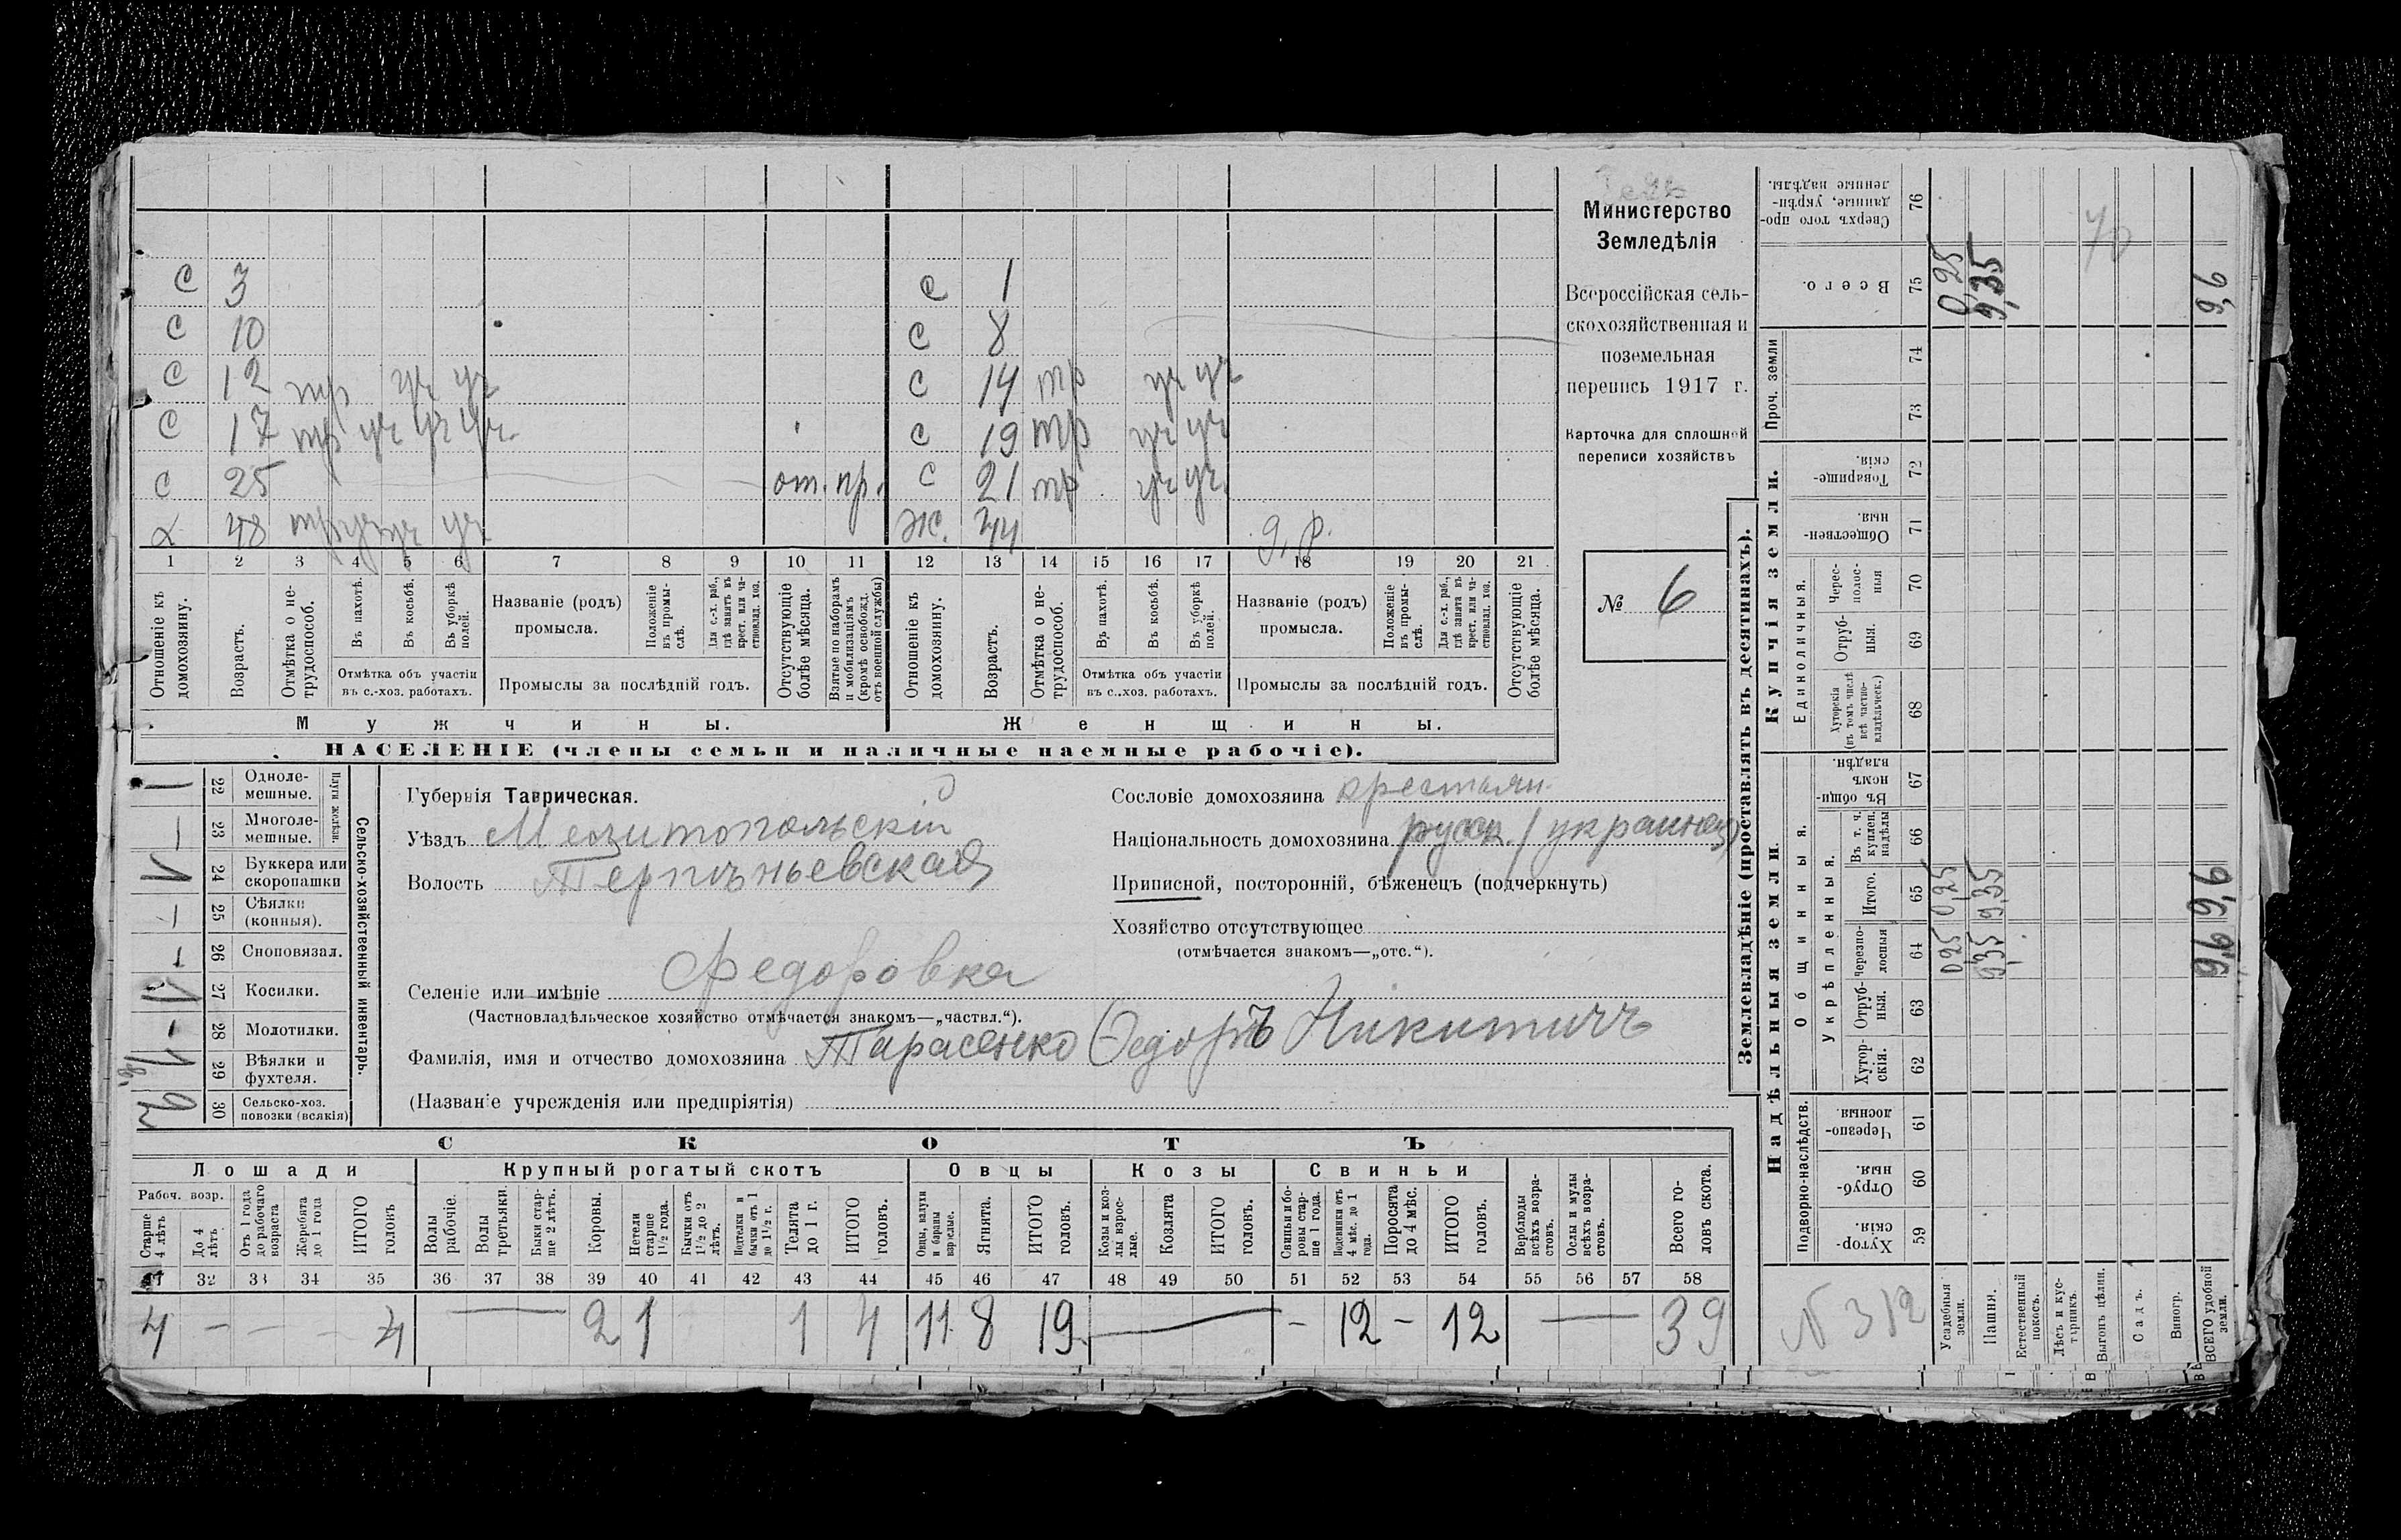 С 3 С 1
С 10 С 8
С 12 тр уч уч С 14 тр уч уч
С 17 тр уч уч уч. С 19 тр уч уч
С 25 от. пр. С 21 тр уч уч
48 тр уч уч уч Ж. 44 д. р.
1 2 3 4 5 6 7 8 9 10 11 12 13 14 15 16 17 18 19 20 21
Отношеніе къ домохозяину.
Возрастъ.
Отмѣтка о нетрудоспособ.
Въ пахотѣ.
Въ косьбѣ.
Въ уборкѣ полей.
Отмѣтка объ участіи въ с.-хоз. работахъ.
Названіе (родъ) промысла.
Положеніе въ промыслѣ.
Для с.-х. раб., гдѣ занятъ въ крест. или частновлад. хоз.
Промыслы за послѣдній годъ.
Отсутствующіе болѣе мѣсяца.
Взятые по наборамъ и мобилизаціямъ (кромѣ освобожд. отъ военной службы)
Отношеніе къ домохозяину.
Возрастъ.
Отмѣтка о нетрудоспособ.
Въ пахотѣ.
Въ косьбѣ.
Въ уборкѣ полей.
Отмѣтка объ участіи въ с..хоз. работахъ.
Названіе (родъ) промысла.
Положеніе въ промыслѣ.
Для с.-х. раб., гдѣ занята въ крест. или частновлад. хоз.
Промыслы за послѣдній годъ.
Отсутствующіе болѣе мѣсяца.
Мужчины. Женщины.
НАСЕЛЕНІЕ (члены семьи и наличные наемные рабочіе).
Министерство
Земледѣлія
Всероссійская сель-
скохозяйственная и
поземельная
перепись 1917 г.
Карточка для сплошной
переписи хозяйствъ
№ 6
1 22 Одноле-мешные.
— 23 Многоле-мешные.
Плуги желѣзн.
1 24 Буккера или скоропашки
— 25 Сѣялки (конныя).
— 26 Сноповязал.
1 27 Косилки.
- 28 Молотилки.
1 29 Вѣялки и фухтеля.
2 30 Сельско-хоз. повозки (всякія)
Сельско-хозяйственный инвентарь.
Губернія Таврическая.
Уѣздъ Мелитопольскій
Волость Терпѣньевская
Селеніе или имѣніе Федоровка
(Частновладѣльческое хозяйство отмѣчается знакомъ—„частвл.“).
Фамилія, имя и отчество домохозяина Тарасенко Ѳедоръ Никитичъ
(Названіе учрежденія или предпріятія)
Сословіе домохозяина крестьян.
Національность домохозяина русск. (украинец)
Приписной, посторонній, бѣженецъ (подчеркнуть)
Хозяйство отсутствующее
(отмѣчается знакомъ—„отс.“).
СКОТЪ
Лошади Крупный рогатый скотъ Овцы Козы Свиньи
Рабоч. возр.
Старше 4 лѣтъ
До 4 лѣтъ
Отъ 1 года до рабочаго возраста
Жеребята до 1 года
ИТОГО головъ
Волы рабочіе.
Волы третьяки.
Быки старше 2 лѣтъ.
Коровы.
Нетели старше 1½ года.
Бычки отъ 1½ до 2 лѣтъ.
Подтелки и бычки отъ 1 до 1½ г.
Телята до 1 г.
ИТОГО головъ.
Овцы, валухи и бараны взрослые.
Ягнята.
ИТОГО головъ.
Козы и козлы взрослые.
Козлята
ИТОГО головъ.
Свиньи и боровы старше 1 года.
Подсвинки отъ 4 мѣс. до 1 года.
Поросята до 4 мѣс.
ИТОГО головъ.
Верблюды всѣхъ возрастовъ.
Ослы и мулы всѣхъ возрастовъ.
Всего головъ скота.
32 33 34 35 36 37 38 39 40 41 42 43 44 45 46 47 48 49 50 51 52 53 54 55 56 57 58
4 — — — 4 — 2 1 1 4 11 8 19 — — 12 — 12 — 39
Землевладѣніе (проставлять въ десятинахъ).
Надѣльныя земли.
Подворно-наслѣдств.
Хуторскія. 59
Отрубныя. 60
Черезполосныя. 61
Общинныя.
Укрѣпленныя.
Хуторскія. 62
Отрубныя. 63
Черезполосныя 64 0,25 9,35 9,6
Итого. 65 0,25 9,35 9,6
Въ т. ч. куплен. надѣлы 66
Въ общинномъ владѣн. 67
Купчія земли.
Единоличныя.
Хуторскія (въ томъ числѣ всѣ частновладѣльческ.) 68
Отрубныя. 69
Черезполосныя 70
Общественныя. 71
Товарищескія. 72
Проч. земли 73 74
Всего. 75 0,25 9,35 9,6
Сверхъ того проданные, укрѣпленные надѣлы. 76
70
N 312
Усадебныя земли.
Пашня.
Естественный покосъ.
Лѣсъ и кустарникъ.
Выгонъ цѣлин.
Садъ.
Виногр.
ВСЕГО удобной земли.